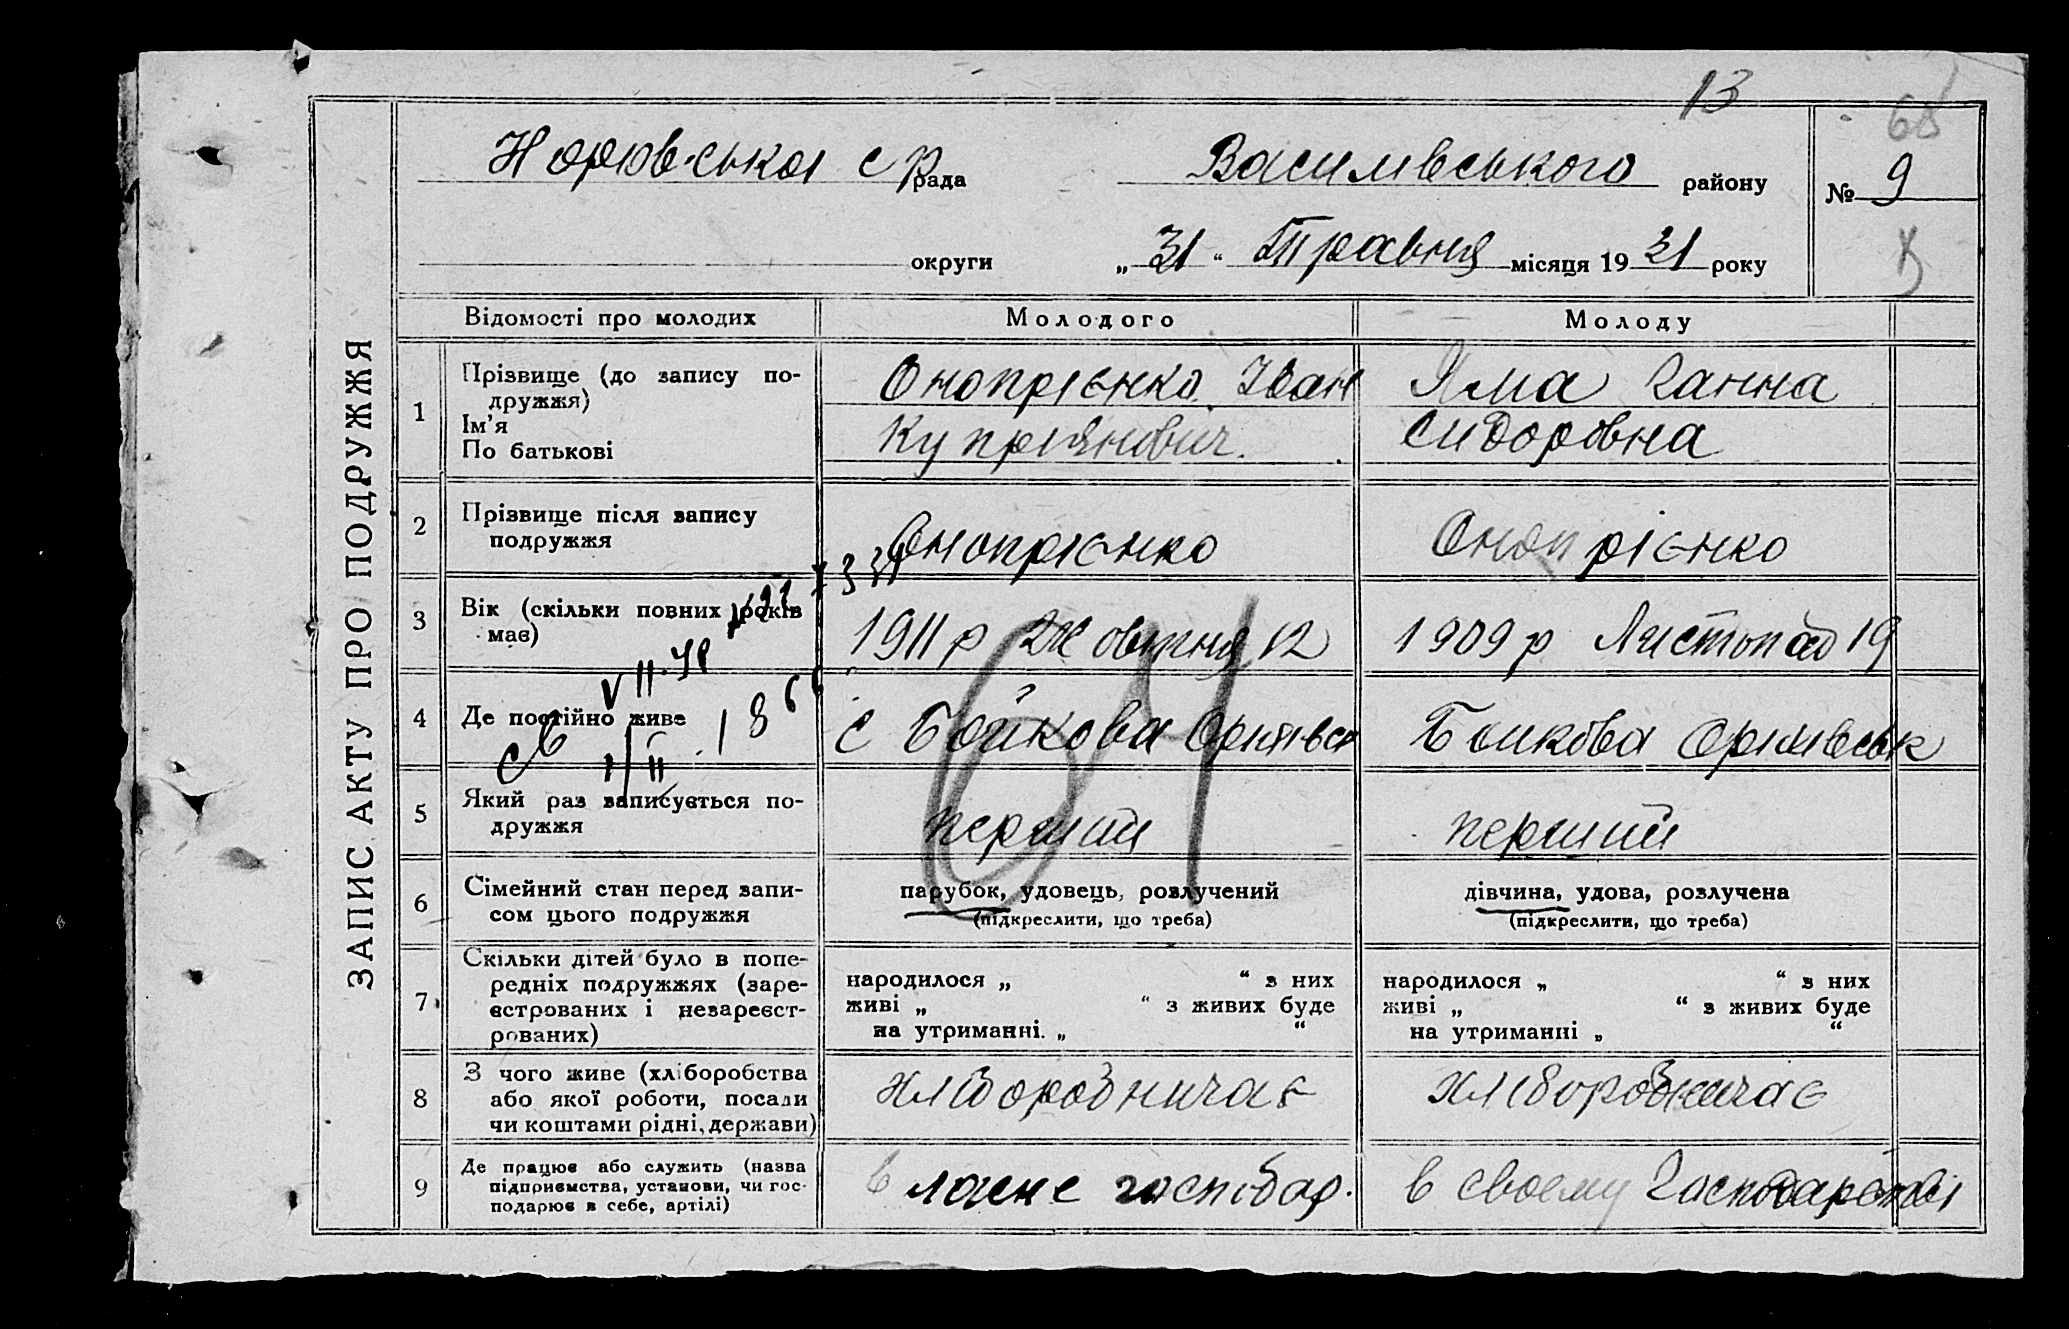 13
68
Василівського району
№ 9
рада
округи „31“ Травня місяця 1931 року
ЗАПИС АКТУ ПРО ПОДРУЖЖЯ
Відомості про молодих Молодого Молоду
1 Прізвище (до запису по-
дружжя)
Ім'я
По батькові
Онопрієнко Іван
Купріянович.
Яма Ганна
Сидоровна
2 Прізвище після запису
подружжя
Онопрієнко
Онопрієнко
3 Вік (скільки повних років
має)
1911 р Жовтня 12
1909 р Листопад 19
4 Де постійно живе
с Бойкова
Бойкова
5 Який раз записується по-
дружжя
перший
перший
6 Сімейний стан перед запи-
сом цього подружжя
парубок, удовець, розлучений
(підкреслити, що треба)
дівчина, удова, розлучена
(підкреслити, що треба)
7 Скільки дітей було в попе-
редніх подружжях (заре-
єстрованих і незареєст-
рованих)
народилося „ “ з них
живі „ “ з живих буде
на утриманні. „ “
народилося „ “ з них
живі „ “ з живих буде
на утриманні „ “
8 З чого живе (хліборобства
або якої роботи, посади
чи коштами рідні, держави)
хліборобничає
хліборобничає
9 Де працює або служить (назва
підприємства, установи, чи гос-
подарює в себе, артілі)
господар.
в своему Господарстві